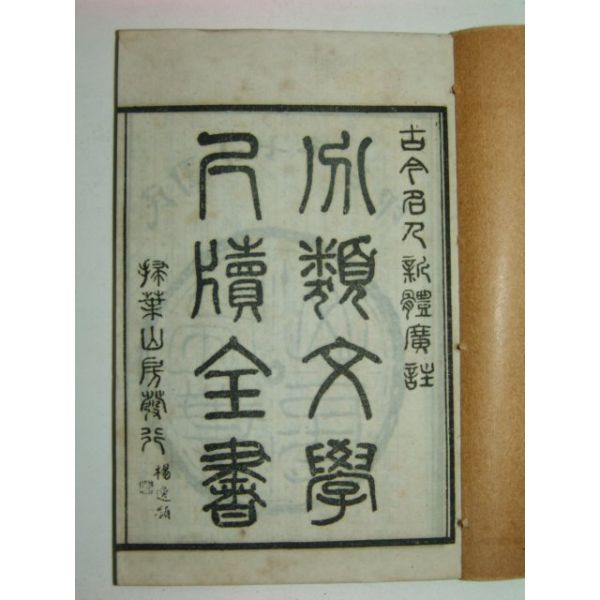 古今名人新體廣註
分類文學
尺牘全書
掃葉山房發行
楊逸題